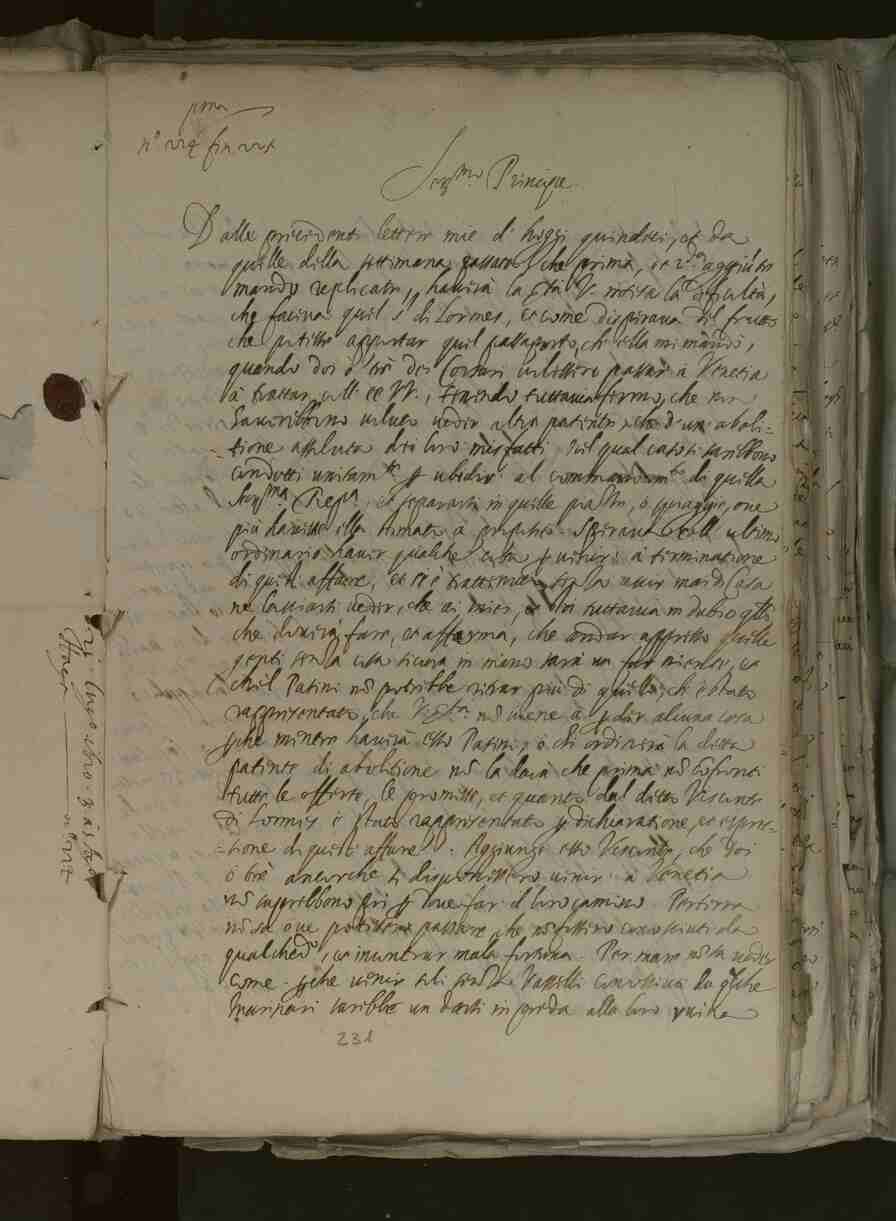 p.ma
Ser.mo Principe
Dalle precedenti lettere mie d'hoggi quindeci, et da
quelle della settimana passata, che prima, et 2.a aggiunto
mando replicate, haverà la S.tà V. intesa la difficultà,
che faceva quel s.r di Lormes, et come disperava del frutto
che potesse apportar quel passaporto, ch'ella mi mandò,
quando doi ò tre dei Corsari volessero passar à Venetia
à trattar coll' EE. VV., tenendo tuttavia fermo, che non
haverebbono voluto veder altra patente, che d'un aboli=
=tione assoluta dei loro misfatti, nel qual caso si sarebbono
condotti unitam.te p ubedir al commandam.to di quella
Ser.ma Rep.a, et separarsi in quelle parti, ò spiaggie, ove
più havesse ella stimato à proposito. Sperava coll' ultimo
ordinario haver qualche cosa p venire à terminatione
di quest' affare, et si è trattenuto senza uscir mai di Casa
ne lasciarsi veder, che ai miei, et sta tuttavia in dubio q.llo
che doverà fare, et afferma, che andar appresso quelle
genti senza cosa sicura in mano sarà un far niente, et
ch'il Patini nõ potrebbe ritrar più di quello, ch'è stato
rappresentato, che V. S.tà nõ viene à p̱der alcuna cosa
p̱che mentre haverà esso Patini, ò chi ordinerà la detta
patente di abolitione nõ la darà che prima nõ cõfronti
tutte le offerte, le promesse, et quanto dal detto Visconte
di Lormes è stato rappresentato p dichiaratione, et espres=
=sione di questo affare. Aggiunge esso Visconte, che doi
ò tre ancorche si disponessero venir à Venetia
nõ saperebbono q̱i p dove far il loro camino. Per terra
nõ sa ove potessero passare, che nõ fossero conosciuti da
qualched.o, et incontrar mala fortuna. Per mare nõ sa veder
come. p̱che venir soli senza Vasselli conosciuti da q̱lche
Marinari sarebbe un darsi in preda alla loro
231